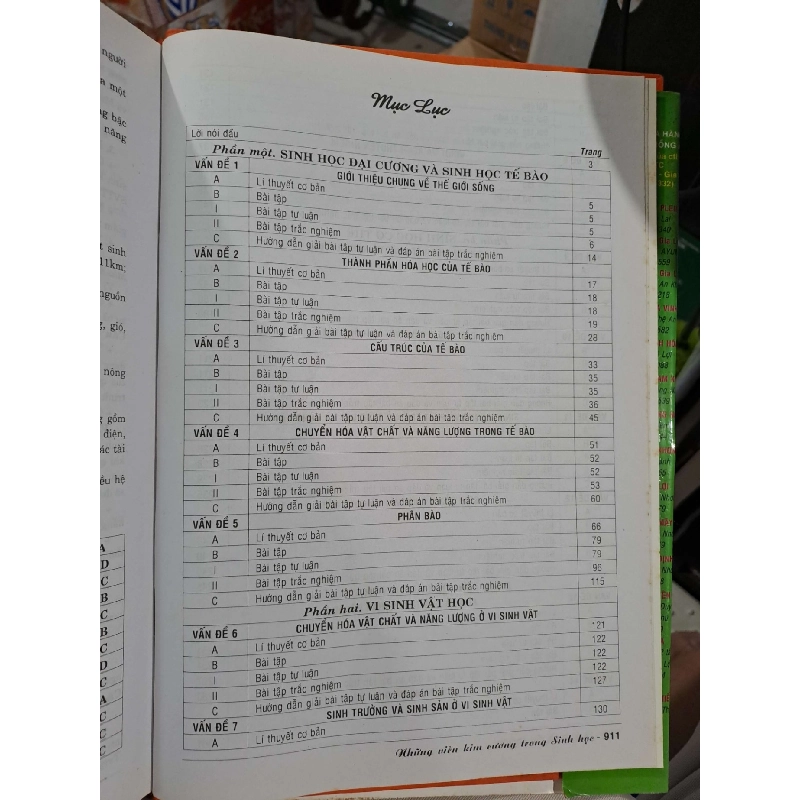 người
a một
g bậc
nâng
t sinh
11km;
nguồn
g, gió,
nông
g gồm
điện,
ác tài
ều hệ
A
D
C
B
C
B
C
D
C
A
C
C
C
Mục Lục
Lời nói đầu Trang
Phần một. SINH HỌC DẠI CƯƠNG VÀ SINH HỌC TẾ BÀO 3
VẤN ĐỀ 1 GIỚI THIỆU CHUNG VỀ THẾ GIỚI SỐNG
A Lí thuyết cơ bản 5
B Bài tập 5
I Bài tập tự luận 5
II Bài tập trắc nghiệm 6
C Hướng dẫn giải bài tập tự luận và đáp án bài tập trắc nghiệm 14
VẤN ĐỀ 2 THÀNH PHẦN HÓA HỌC CỦA TẾ BÀO
A Lí thuyết cơ bản 17
B Bài tập 18
I Bài tập tự luận 18
II Bài tập trắc nghiệm 19
C Hướng dẫn giải bài tập tự luận và đáp án bài tập trắc nghiệm 28
VẤN ĐỀ 3 CẤU TRÚC CỦA TẾ BÀO
A Lí thuyết cơ bản 33
B Bài tập 35
I Bài tập tự luận 35
II Bài tập trắc nghiệm 36
C Hướng dẫn giải bài tập tự luận và đáp án bài tập trắc nghiệm 45
VẤN ĐỀ 4 CHUYỂN HÓA VẬT CHẤT VÀ NĂNG LƯỢNG TRONG TẾ BÀO
A Lí thuyết cơ bản 51
B Bài tập 52
I Bài tập tự luận 52
II Bài tập trắc nghiệm 53
C Hướng dẫn giải bài tập tự luận và đáp án bài tập trắc nghiệm 60
VẤN ĐỀ 5 PHÂN BÀO
A Lí thuyết cơ bản 66
B Bài tập 79
I Bài tập tự luận 79
II Bài tập trắc nghiệm 96
C Hướng dẫn giải bài tập tự luận và đáp án bài tập trắc nghiệm 115
Phần hai. VI SINH VẬT HỌC
VẤN ĐỀ 6 CHUYỂN HÓA VẬT CHẤT VÀ NĂNG LƯỢNG Ở VI SINH VẬT
A Lí thuyết cơ bản 121
B Bài tập 122
I Bài tập tự luận 122
II Bài tập trắc nghiệm 122
C Hướng dẫn giải bài tập tự luận và đáp án bài tập trắc nghiệm 127
VẤN ĐỀ 7 SINH TRƯỞNG VÀ SINH SẢN Ở VI SINH VẬT
A Lí thuyết cơ bản 130
Những viên kim cương trong Sinh học - 911